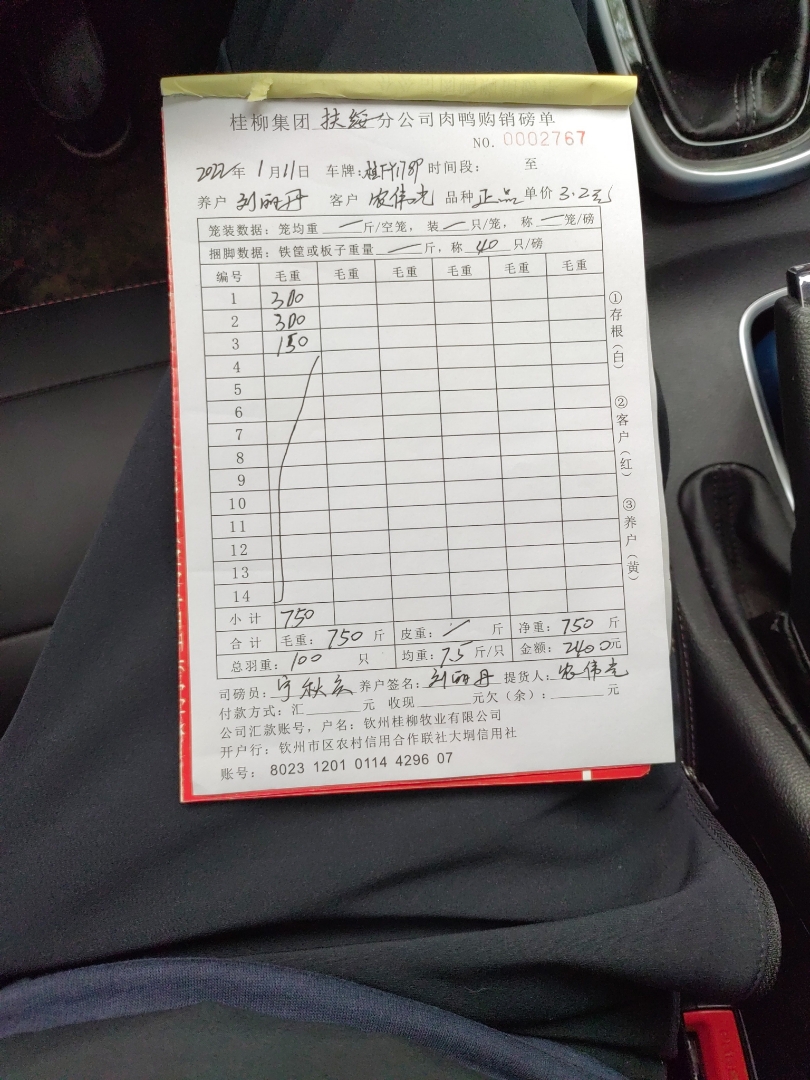 桂柳集团 扶绥 分公司肉鸭购销磅单
NO. 0002767
2022年 1月11日 车牌: 时间段: 至
养户 刘丽丹 客户 农伟光 品种 正品 单价 3.2元
笼装数据: 笼均重 — 斤/空笼, 装 — 只/笼, 称 — 笼/磅
捆脚数据: 铁筐或板子重量 — 斤, 称 40 只/磅
编号 毛重 毛重 毛重 毛重 毛重 毛重
1 300
2 300
3 150
4
5
6
7
8
9
10
11
12
13
14
小计 750
合计 毛重: 750 斤 皮重: / 斤 净重: 750 斤
总羽重: 100 只 均重: 7.5 斤/只 金额: 2400元
司磅员: 养户签名: 刘丽丹 提货人: 农伟光
付款方式: 汇 元 收现 元欠(余): 元
公司汇款账号, 户名: 钦州桂柳牧业有限公司
开户行: 钦州市区农村信用合作联社大垌信用社
账号: 8023 1201 0114 4296 07
①存根(白)
②客户(红)
③养户(黄)